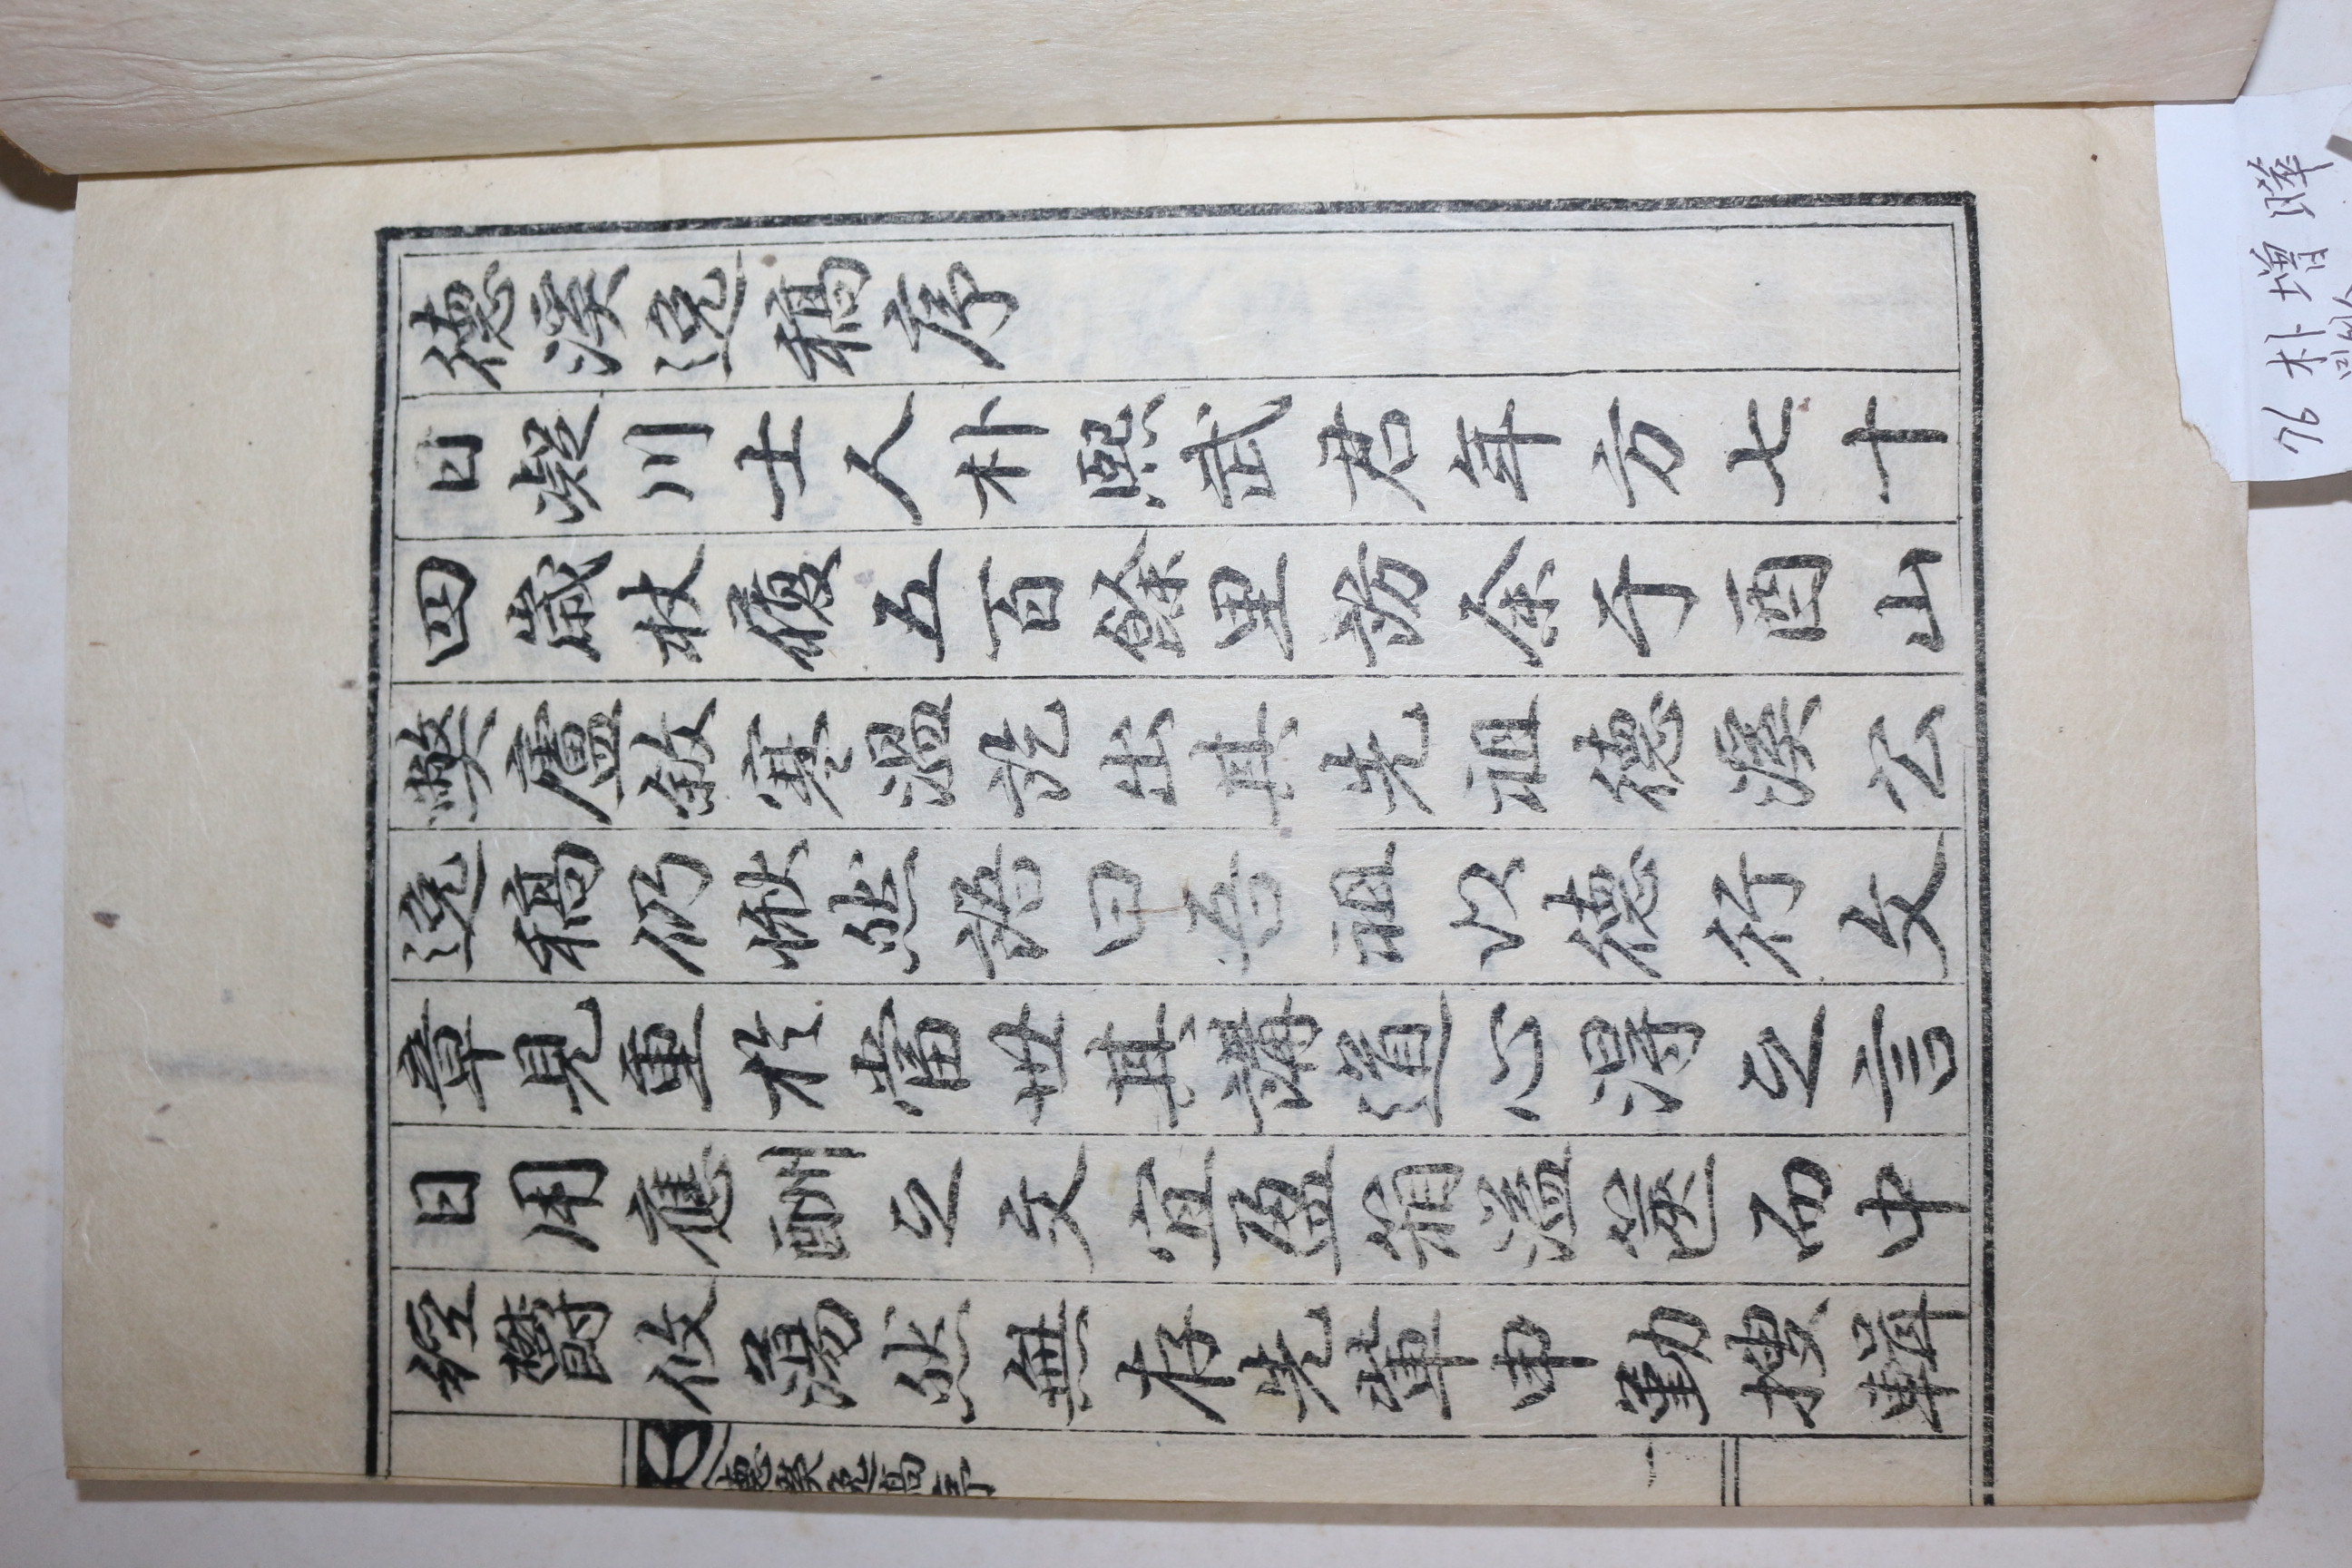 德溪逸稿序
日凝川士人朴熙武君年方七十
四歲杖履五百餘里訪余于酉山
弊廬敘寒溫訖出其先祖德溪公
逸稿仍愀然語曰吾祖以德行文
章見重於當世其講道心得之言
日用應酬之文宜盈箱溢篋而中
經欝攸蕩然無存先輩申勤搜輯
德溪逸稿序
一
76 朴增曄